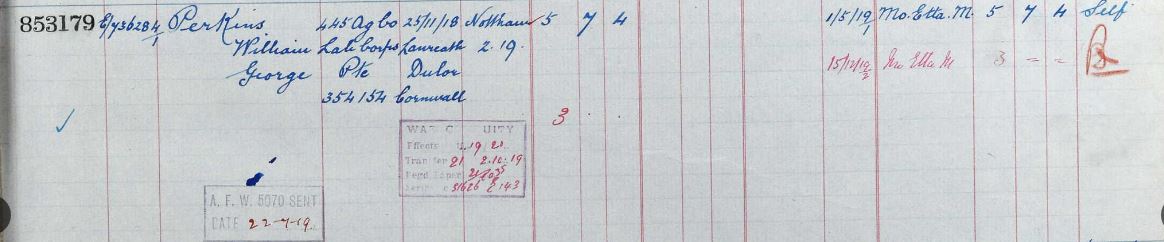 853179 E/736284/1 Perkins 445 Ag Co 25/11/18 Nottham 5 7 4 1/5/19 Mo. Etta. M. 5 7 4 Self
William Lab Corps Laureath 2.19.
George Pte Dulor 15/12/19 Mo Etta M 3 - -
354154 Cornwall
3 . .
WAR UITY
Effects 19
Transfer 21 2.10.19
Regd Paper
A. F. W. 5070 SENT
DATE 22-7-19.